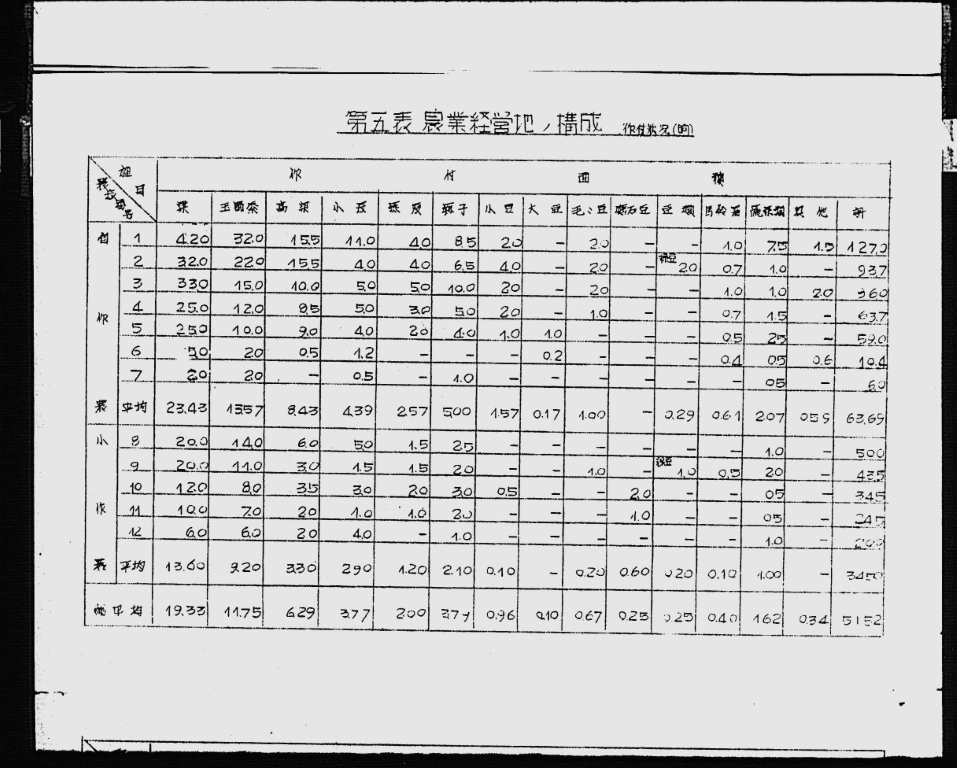 第五表 農業経営地ノ構成 作付状况(晌)
種目 作付面積
農家番号 粟 玉蜀黍 高粱 小麦 蕎麦 糜子 小豆 大豆 豌豆 豆類 馬鈴薯 蔬菜類 其他 計
自作農 1 42.0 32.0 15.5 11.0 4.0 8.5 2.0 - 2.0 - - 1.0 7.5 1.5 127.0
2 32.0 22.0 15.5 4.0 4.0 6.5 4.0 - 2.0 - 緑豆 2.0 0.7 1.0 - 93.7
3 33.0 15.0 10.0 5.0 5.0 10.0 2.0 - 2.0 - - 1.0 1.0 2.0 86.0
4 25.0 12.0 8.5 5.0 3.0 5.0 2.0 - 1.0 - - 0.7 1.5 - 63.7
5 25.0 10.0 9.0 4.0 2.0 4.0 1.0 1.0 - - - 0.5 2.5 - 59.0
6 5.0 2.0 0.5 1.2 - - - 0.2 - - - 0.4 0.5 0.6 10.4
7 2.0 2.0 - 0.5 - 1.0 - - - - - - 0.5 - 6.0
平均 23.43 13.57 8.43 4.39 2.57 5.00 1.57 0.17 1.00 - 0.29 0.61 2.07 0.59 63.69
小作農 8 20.0 14.0 6.0 5.0 1.5 2.5 - - - - - - 1.0 - 50.0
9 20.0 11.0 3.0 1.5 1.5 2.0 - - 1.0 - 緑豆 1.0 0.5 2.0 - 43.5
10 12.0 8.0 3.5 3.0 2.0 3.0 0.5 - - 2.0 - - 0.5 - 34.5
11 10.0 7.0 2.0 1.0 1.0 2.0 - - - 1.0 - - 0.5 - 24.5
12 6.0 6.0 2.0 4.0 - 1.0 - - - - - - 1.0 - 20.0
平均 13.60 9.20 3.30 2.90 1.20 2.10 0.10 - 0.20 0.60 0.20 0.10 1.00 - 34.50
総平均 19.33 11.75 6.29 3.77 2.00 3.79 0.96 0.10 0.67 0.25 0.25 0.40 1.62 0.34 51.52